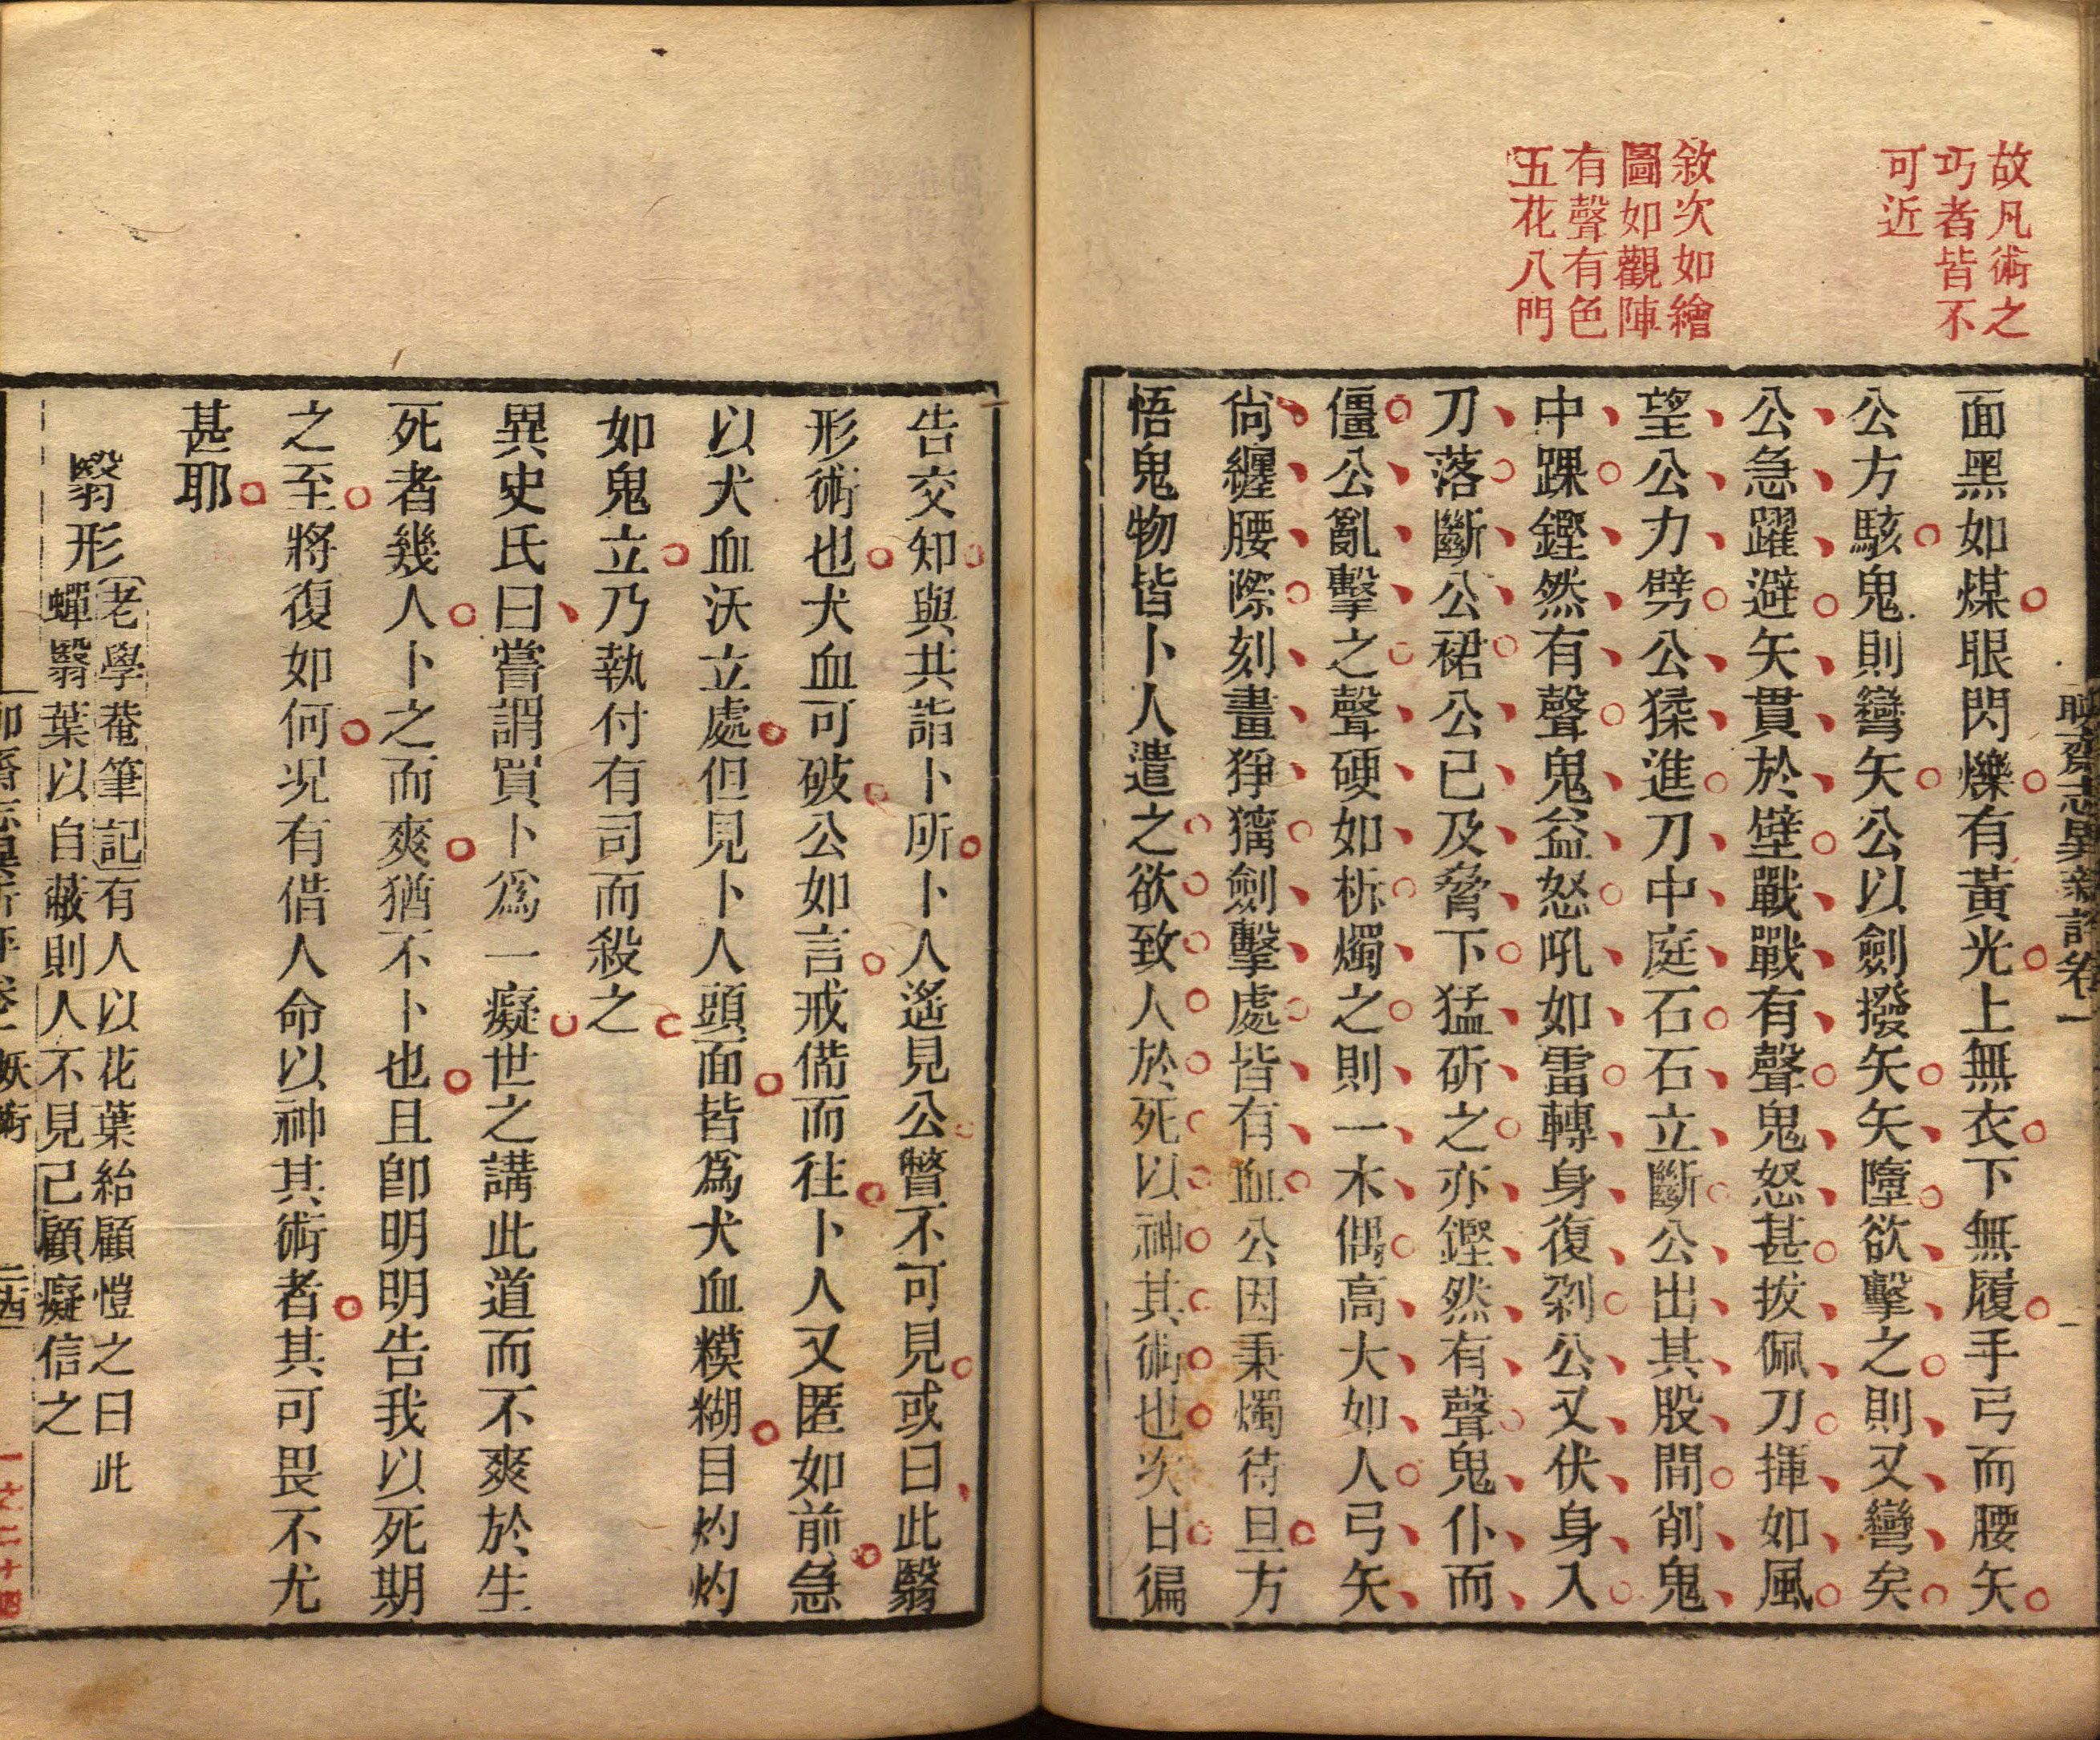 故凡術之
巧者皆不
可近
敘次如繪
圖如觀陣
有聲有色
五花八門
聊齋志異新評卷一
面黑如煤眼閃爍有黃光上無衣下無履手弓而腰矢
公方駭鬼則彎矢公以劍撥矢矢墮欲擊之則又彎矣
公急躍避矢貫於壁戰戰有聲鬼怒甚拔佩刀揮如風
望公力劈公猱進刀中庭石石立斷公出其股間削鬼
中踝鏗然有聲鬼益怒吼如雷轉身復剁公又伏身入
刀落斷公裙公已及脅下猛斫之亦鏗然有聲鬼仆而
僵公亂擊之聲硬如柝燭之則一木偶高大如人弓矢
尙纏腰際刻畫猙獰劍擊處皆有血公因秉燭待旦方
悟鬼物皆卜人遣之欲致人於死以神其術也次日徧
告交知與共詣卜所卜人遙見公瞥不可見或曰此翳
形術也犬血可破公如言戒備而往卜人又匿如前急
以犬血沃立處但見卜人頭面皆爲犬血糢糊目灼灼
如鬼立乃執付有司而殺之
異史氏曰嘗謂買卜爲一癡世之講此道而不爽於生
死者幾人卜之而爽猶不卜也且卽明明告我以死期
之至將復如何況有借人命以神其術者其可畏不尤
甚耶
翳形
老學菴筆記有人以花葉紿顧愷之曰此
蟬翳葉以自蔽則人不見己顧癡信之
聊齋志異新評卷一 妖術 二四
一之二十四